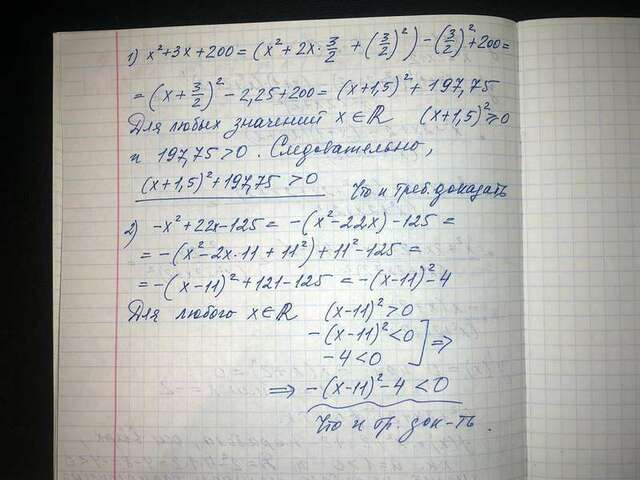 1) x²+3x+200=(x²+2x·3/2+(3/2)²)-(3/2)²+200=
=(x+3/2)²-2,25+200=(x+1,5)²+197,75
Для любых значений x∈R (x+1,5)²≥0
и 197,75>0. Следовательно,
(x+1,5)²+197,75>0 Что и треб. доказать
2) -x²+22x-125=-(x²-22x)-125=
=-(x²-2x·11+11²)+11²-125=
=-(x-11)²+121-125=-(x-11)²-4
Для любого x∈R (x-11)²>0
-(x-11)²<0
-4<0 ] ⇒
⇒ -(x-11)²-4<0
Что и тр. док-ть.